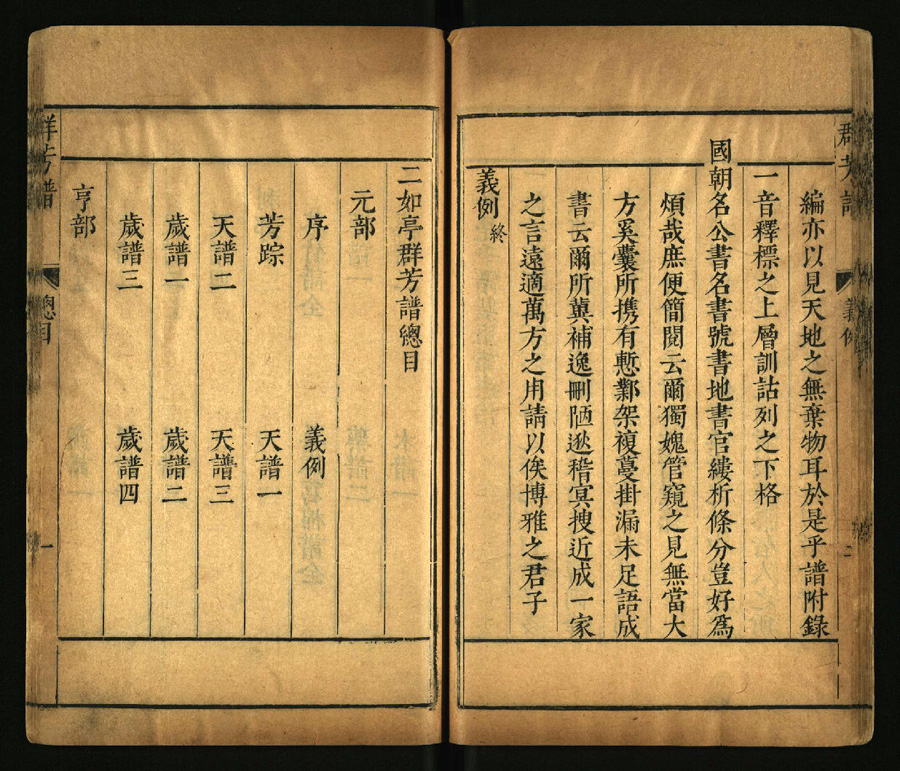 群芳譜
義例
二
編亦以見天地之無棄物耳於是乎譜附錄
一音釋標之上層訓詁列之下格
國朝名公書名書號書地書官縷析條分豈好為
煩哉庶便簡閱云爾獨媿管窺之見無當大
方奚囊所携有慙鄴架複蔓掛漏未足語成
書云爾所冀補逸刪陋逖稽冥搜近成一家
之言遠適萬方之用請以俟博雅之君子
義例終
二如亭群芳譜總目
元部
序 義例
芳踪 天譜一
天譜二 天譜三
歲譜一 歲譜二
歲譜三 歲譜四
亨部
群芳譜
總目
一